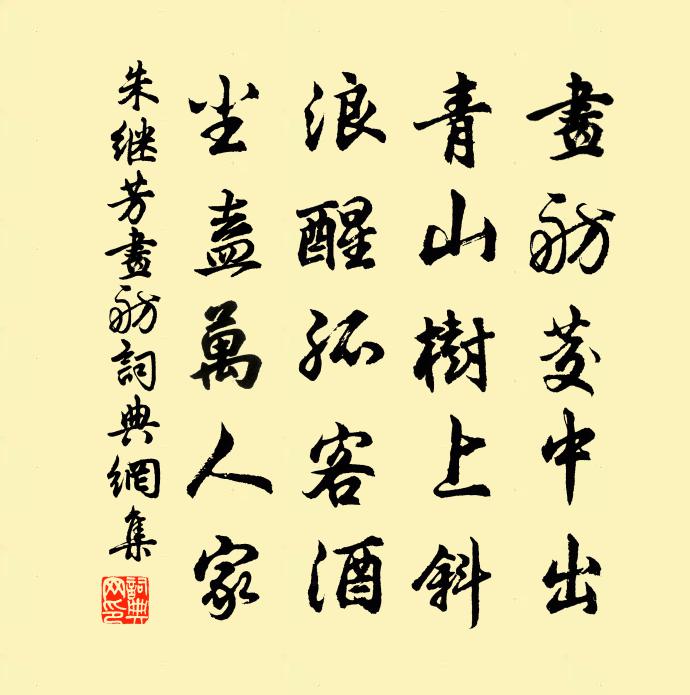 畫舫菱中出
青山樹上斜
浪醒孤客酒
坐盍萬人家
朱继芳畫舫詞典網集
詞典网印